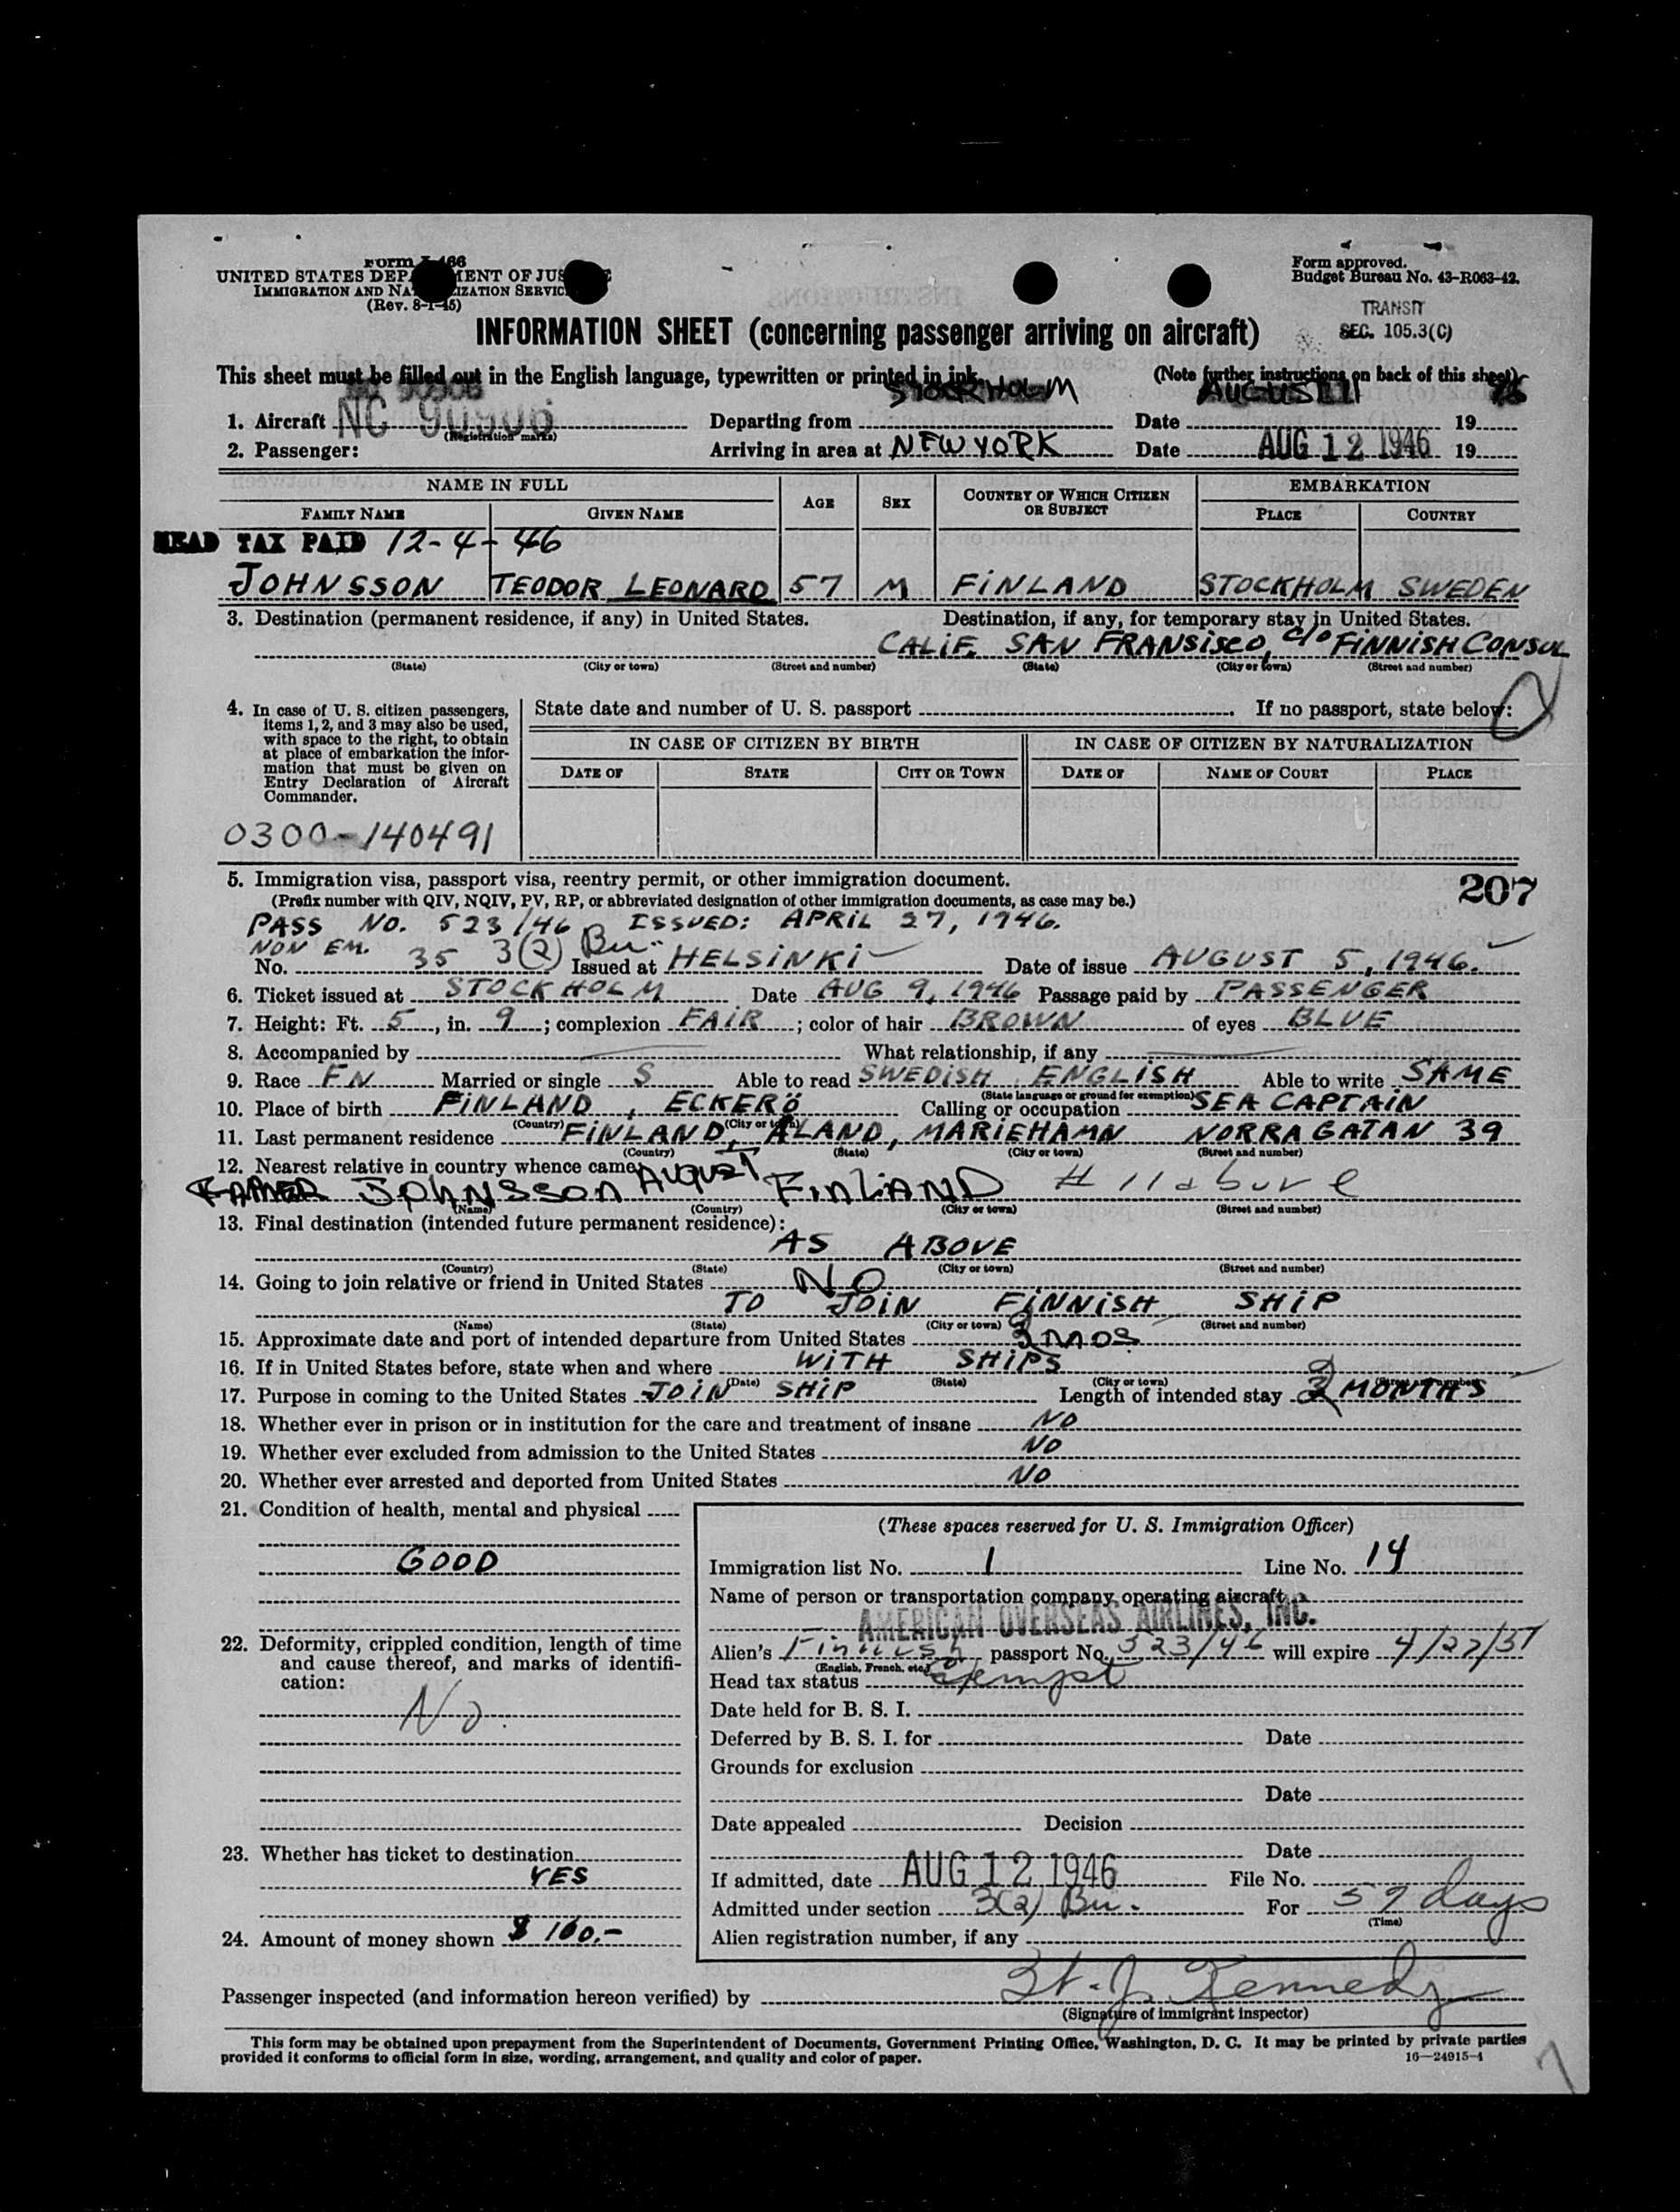 Form I-466
UNITED STATES DEPARTMENT OF JUSTICE
IMMIGRATION AND NATURALIZATION SERVICE
(Rev. 8-1-45)
Form approved.
Budget Bureau No. 43-R063-42.
TRANSIT
SEC. 105.3(C)
INFORMATION SHEET (concerning passenger arriving on aircraft)
This sheet must be filled out in the English language, typewritten or printed in ink. (Note further instructions on back of this sheet)
1. Aircraft NC 90906 (Registration marks) Departing from STOCKHOLM Date AUGUST 11 1946
2. Passenger: Arriving in area at NEW YORK Date AUG 12 1946 19
NAME IN FULL AGE SEX COUNTRY OF WHICH CITIZEN OR SUBJECT EMBARKATION
FAMILY NAME GIVEN NAME PLACE COUNTRY
HEAD TAX PAID 12-4-46
JOHNSSON TEODOR LEONARD 57 M FINLAND STOCKHOLM SWEDEN
3. Destination (permanent residence, if any) in United States. Destination, if any, for temporary stay in United States.
CALIF. SAN FRANSISCO, c/o FINNISH CONSUL
(State) (City or town) (Street and number) (State) (City or town) (Street and number)
4. In case of U. S. citizen passengers, items 1, 2, and 3 may also be used, with space to the right, to obtain at place of embarkation the information that must be given on Entry Declaration of Aircraft Commander.
State date and number of U. S. passport If no passport, state below:
IN CASE OF CITIZEN BY BIRTH IN CASE OF CITIZEN BY NATURALIZATION
DATE OF STATE CITY OR TOWN DATE OF NAME OF COURT PLACE
0300-140491
5. Immigration visa, passport visa, reentry permit, or other immigration document. 207
(Prefix number with QIV, NQIV, PV, RP, or abbreviated designation of other immigration documents, as case may be.)
PASS NO. 523/46 ISSUED: APRIL 27, 1946.
NON EM.
No. 35 3(2) Bu. Issued at HELSINKI Date of issue AUGUST 5, 1946.
6. Ticket issued at STOCKHOLM Date AUG 9, 1946 Passage paid by PASSENGER
7. Height: Ft. 5, in. 9; complexion FAIR; color of hair BROWN of eyes BLUE
8. Accompanied by What relationship, if any
9. Race FN Married or single S Able to read SWEDISH ENGLISH Able to write SAME
(State language or ground for exemption)
10. Place of birth FINLAND, ECKERÖ Calling or occupation SEA CAPTAIN
(Country) (City or town)
11. Last permanent residence FINLAND, ÅLAND, MARIEHAMN NORRAGATAN 39
(Country) (State) (City or town) (Street and number)
12. Nearest relative in country whence came
JOHNSSON AUGUST FINLAND
(Name) (Country) (City or town) (Street and number)
13. Final destination (intended future permanent residence):
AS ABOVE
(Country) (State) (City or town) (Street and number)
14. Going to join relative or friend in United States NO
TO JOIN FINNISH SHIP
(Name) (State) (City or town) (Street and number)
15. Approximate date and port of intended departure from United States MOS
16. If in United States before, state when and where WITH SHIPS
(Date) (State) (City or town) (Street and number)
17. Purpose in coming to the United States JOIN SHIP Length of intended stay 2 MONTHS
18. Whether ever in prison or in institution for the care and treatment of insane NO
19. Whether ever excluded from admission to the United States NO
20. Whether ever arrested and deported from United States NO
21. Condition of health, mental and physical
GOOD
22. Deformity, crippled condition, length of time and cause thereof, and marks of identification:
No.
23. Whether has ticket to destination
YES
24. Amount of money shown $ 160.-
(These spaces reserved for U. S. Immigration Officer)
Immigration list No. 1 Line No. 14
Name of person or transportation company operating aircraft
AMERICAN OVERSEAS AIRLINES, INC.
Alien's Finnish passport No. 523/46 will expire 4/27/51
(English, French, etc.)
Head tax status Exempt
Date held for B. S. I.
Deferred by B. S. I. for Date
Grounds for exclusion
Date
Date appealed Decision
Date
If admitted, date AUG 12 1946 File No.
Admitted under section 3(2) Bu. For 59 days
(Time)
Alien registration number, if any
Passenger inspected (and information hereon verified) by St. J. Kennedy
(Signature of immigrant inspector)
This form may be obtained upon prepayment from the Superintendent of Documents, Government Printing Office, Washington, D. C. It may be printed by private parties
provided it conforms to official form in size, wording, arrangement, and quality and color of paper. 16—24915-1